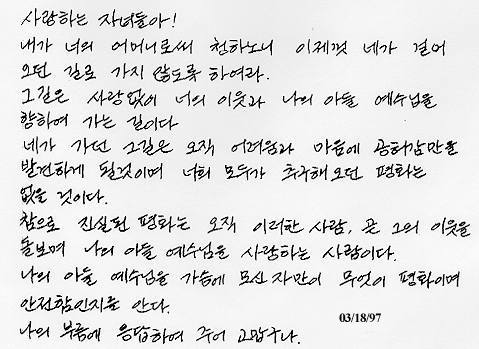 사랑하는 자녀들아!
내가 너의 어머니로써 청하노니 이제껏 네가 걸어
오던 길로 가지 않도록 하여라.
그길은 사랑없이 너의 이웃과 나의 아들 예수님을
향하여 가는 길이다
네가 가던 그길은 오직 어려움과 마음에 공허감만을
발견하게 될것이며 너희 모두가 추구해 오던 평화는
없을 것이다.
참으로 진실된 평화는 오직 이러한 사람, 곧 그의 이웃을
돌보며 나의 아들 예수님을 사랑하는 사람이다.
나의 아들 예수님을 가슴에 모신 자만이 무엇이 평화이며
안전함인지를 안다.
나의 부름에 응답하여 주어 고맙구나.
03/18/97